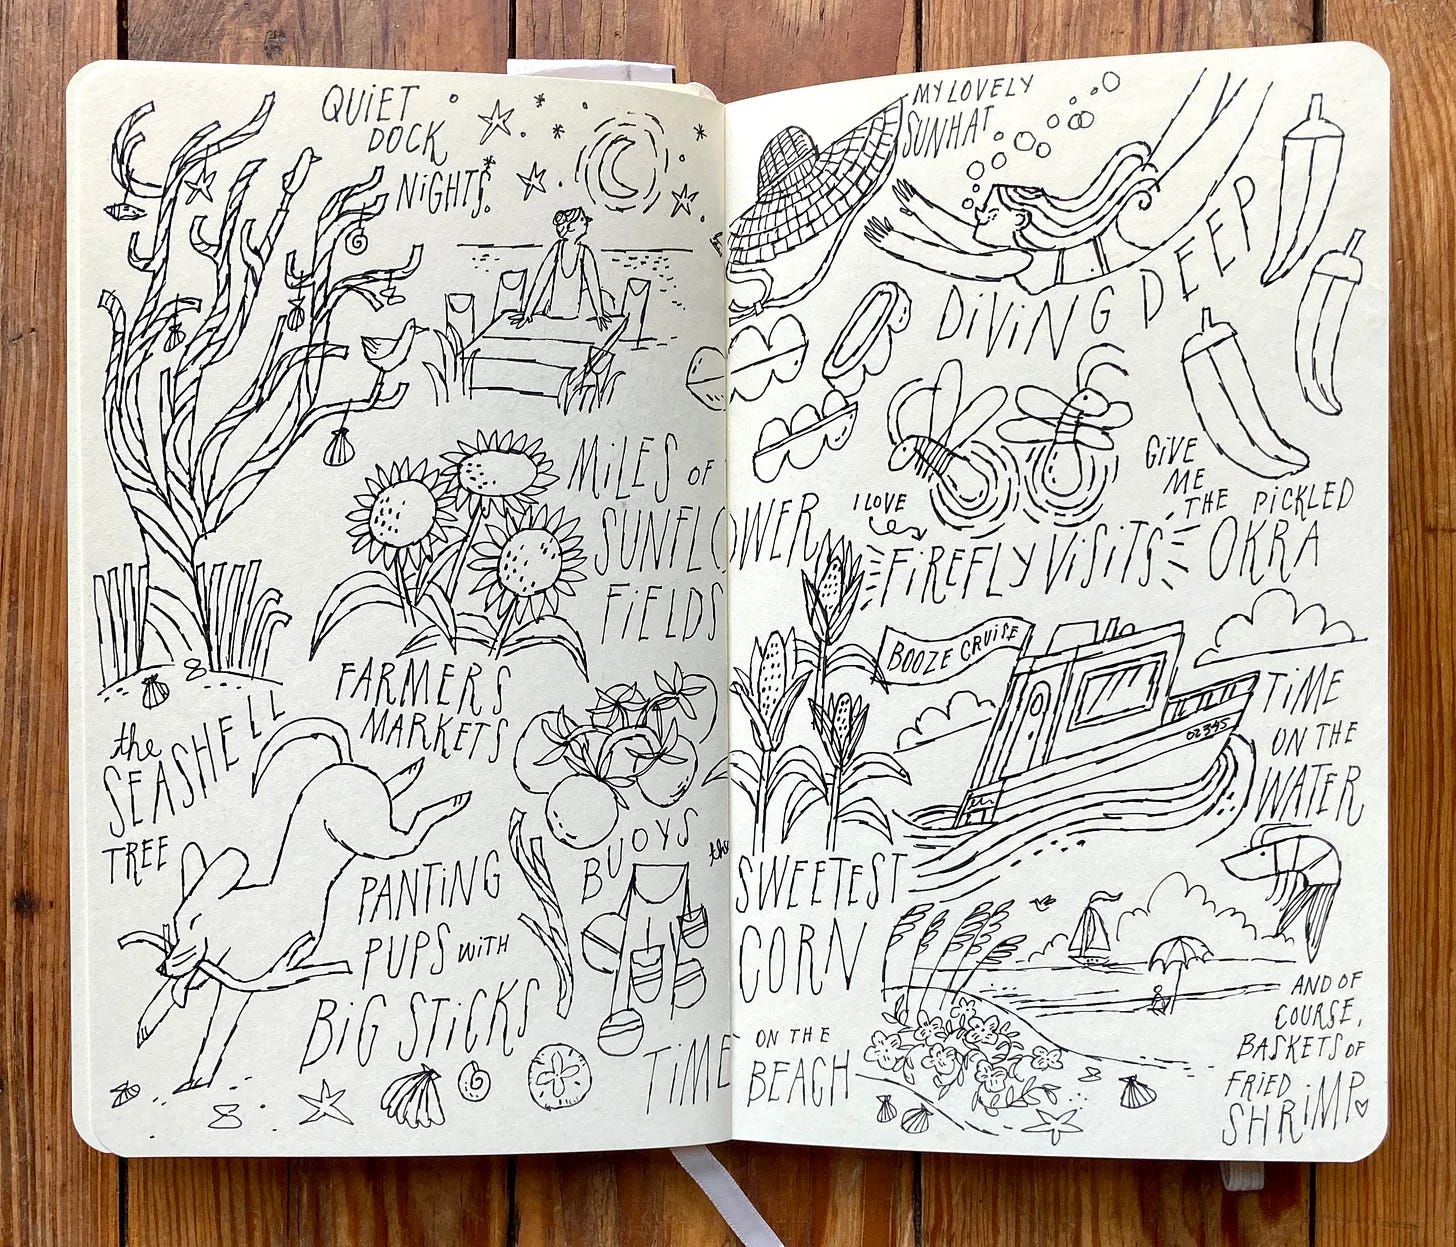 QUIET
DOCK
NIGHTS.
the
SEASHELL
TREE
MILES OF
SUNFLOWER
FIELDS
FARMERS
MARKETS
BUOYS
PANTING
PUPS WITH
BIG STICKS
TIME ON THE
BEACH
MY LOVELY
SUNHAT
DIVING DEEP
I LOVE
FIREFLY VISITS
GIVE
ME
THE PICKLED
OKRA
BOOZE CRUISE
02345
TIME
ON THE
WATER
the
SWEETEST
CORN
AND OF
COURSE,
BASKETS OF
FRIED
SHRIMP